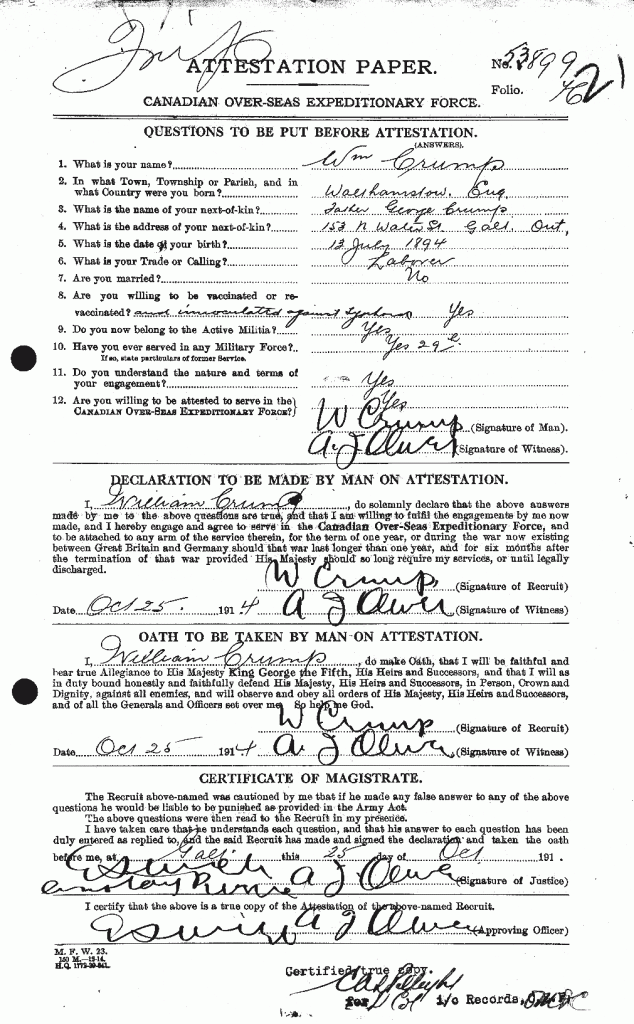 ATTESTATION PAPER.
No. 53899
Folio.
CANADIAN OVER-SEAS EXPEDITIONARY FORCE.
QUESTIONS TO BE PUT BEFORE ATTESTATION.
(ANSWERS).
1. What is your name? Wm Crump
2. In what Town, Township or Parish, and in
what Country were you born? Walthamstow. Eng
3. What is the name of your next-of-kin? Father George Crump
4. What is the address of your next-of-kin? 153 N Water St. Galt. Ont,
5. What is the date of your birth? 13 July 1894
6. What is your Trade or Calling? Laborer
7. Are you married? No
8. Are you willing to be vaccinated or re-
vaccinated? and innoculated against Yes
9. Do you now belong to the Active Militia? Yes
10. Have you ever served in any Military Force? Yes 29
If so, state particulars of former Service.
11. Do you understand the nature and terms of
your engagement? Yes
12. Are you willing to be attested to serve in the Yes
CANADIAN OVER-SEAS EXPEDITIONARY FORCE?
W Crump (Signature of Man).
A J Oliver (Signature of Witness).
DECLARATION TO BE MADE BY MAN ON ATTESTATION.
I, William Crump, do solemnly declare that the above answers
made by me to the above questions are true, and that I am willing to fulfil the engagements by me now
made, and I hereby engage and agree to serve in the Canadian Over-Seas Expeditionary Force, and
to be attached to any arm of the service therein, for the term of one year, or during the war now existing
between Great Britain and Germany should that war last longer than one year, and for six months after
the termination of that war provided His Majesty should so long require my services, or until legally
discharged.
W Crump (Signature of Recruit)
Date Oct 25. 1914 A J Oliver (Signature of Witness)
OATH TO BE TAKEN BY MAN ON ATTESTATION.
I, William Crump, do make Oath, that I will be faithful and
bear true Allegiance to His Majesty King George the Fifth, His Heirs and Successors, and that I will as
in duty bound honestly and faithfully defend His Majesty, His Heirs and Successors, in Person, Crown and
Dignity, against all enemies, and will observe and obey all orders of His Majesty, His Heirs and Successors,
and of all the Generals and Officers set over me. So help me God.
W Crump (Signature of Recruit)
Date Oct 25 1914 A J Oliver (Signature of Witness)
CERTIFICATE OF MAGISTRATE.
The Recruit above-named was cautioned by me that if he made any false answer to any of the above
questions he would be liable to be punished as provided in the Army Act.
The above questions were then read to the Recruit in my presence.
I have taken care that he understands each question, and that his answer to each question has been
duly entered as replied to, and the said Recruit has made and signed the declaration and taken the oath
before me, at Galt this 25 day of Oct 191 .
A J Oliver (Signature of Justice)
I certify that the above is a true copy of the Attestation of the above-named Recruit.
A J Oliver (Approving Officer)
M. F. W. 23.
H.Q. 1772-39-841.
Certified true copy.
for i/c Records,